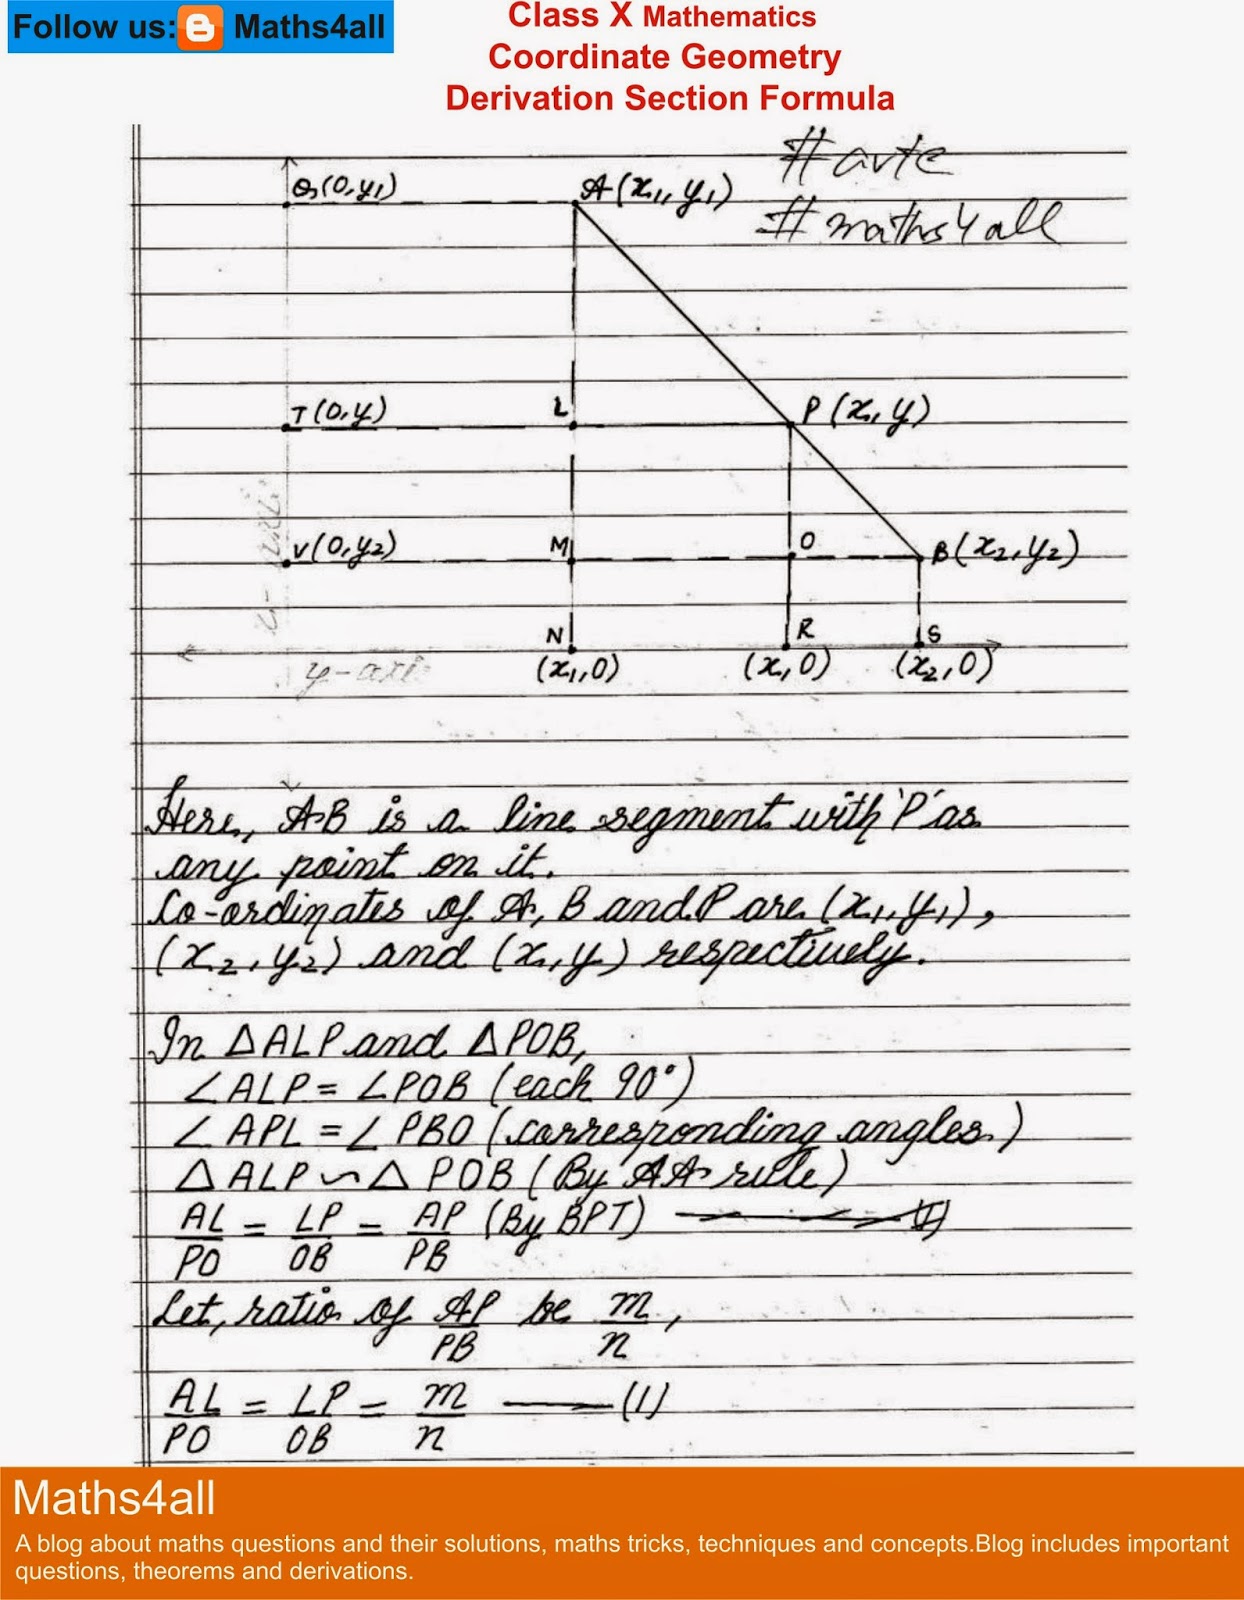 Follow us: Maths4all
Class X Mathematics
Coordinate Geometry
Derivation Section Formula
#avte
#maths4all
Q(0,y1)
A(x1,y1)
T(0,y)
L
P(x,y)
V(0,y2)
M
O
B(x2,y2)
N
R
S
y-axi
(x1,0)
(x,0)
(x2,0)
Here, AB is a line segment with 'P' as
any point on it.
Co-ordinates of A, B and P are (x1,y1),
(x2,y2) and (x,y) respectively.
In ΔALP and ΔPOB,
∠ALP = ∠POB (each 90°)
∠APL = ∠PBO (corresponding angles)
ΔALP ∽ Δ POB (By AA rule)
AL/PO = LP/OB = AP/PB (By BPT)
Let, ratio of AP/PB be m/n,
AL/PO = LP/OB = m/n —— (1)
Maths4all
A blog about maths questions and their solutions, maths tricks, techniques and concepts.Blog includes important
questions, theorems and derivations.